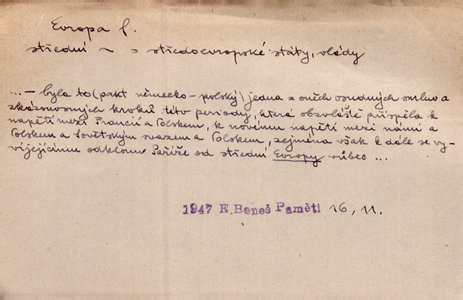 Evropa f.
střední ~ = středoevropské státy, vlády
... – bylo to (pakt německo-polský) jedna z oněch osudných omluv a
zkázonosných kroků této periody, která obzvláště přispěla k
napětí mezi Francií a Polskem, k novému napětí mezi námi a
Polskem a Sovětským svazem a Polskem, zejména však k dále se vy-
víjejícímu odklonu Paříže od střední Evropy vůbec ...
1947 E. Beneš Paměti 16, 11.